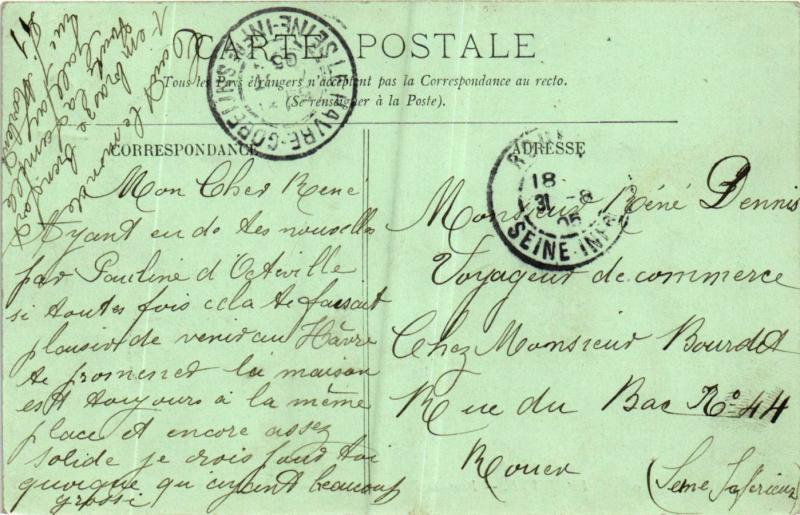 CARTE POSTALE
Tous les Pays étrangers n'acceptent pas la Correspondance au recto.
(Se renseigner à la Poste).
CORRESPONDANCE
Mon Cher René
Ayant eu de tes nouvelles
par Pauline d'Octeville
si toutes fois cela te faisait
plaisir de venir au Hâvre
te promener la maison
est toujours à la même
place et encore assez
solide je crois pour toi
quoique ayant beaucoup
grossi
tout le monde
t'embrasse
toute la famille
rue
91
LE HAVRE-GODERVILLE
SEINE-INFRE
05
ADRESSE
Monsieur Réné Dennis
Voyageur de commerce
Chez Monsieur Bourdet
Rue du Bac No 44
Rouen
(Seine Inférieure)
18
31 -8
05
SEINE-INFRE